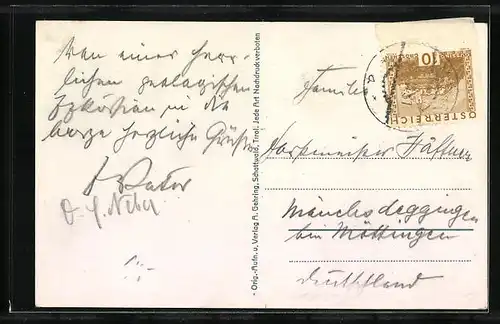 Von einer herr-
lichen geologischen
Exkursion in die
herzliche Grüße
Vater
Orig.-Aufn. u. Verlag A. Gehring, Schattwald, Tirol. Jede Art Nachdruck verboten
10
ÖSTERREICH
Familie
Mönchsdeggingen
bei Möttingen
Deutschland